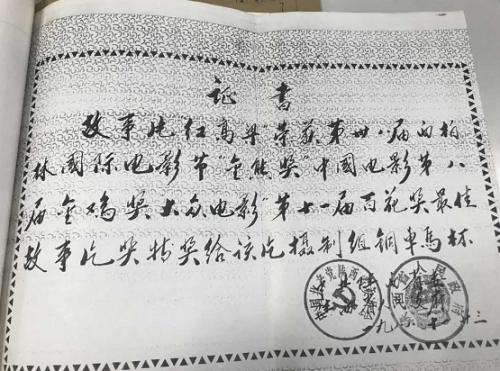 证书
故事片红高粱荣获第卅八届西柏
林国际电影节“金熊奖”中国电影第八
届金鸡奖大众电影第十一届百花奖最佳
故事片奖特奖给该片摄制组铜车马杯